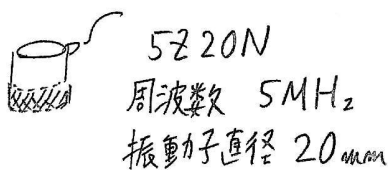 5Z20N
周波数 5MHz
振動子直径 20mm